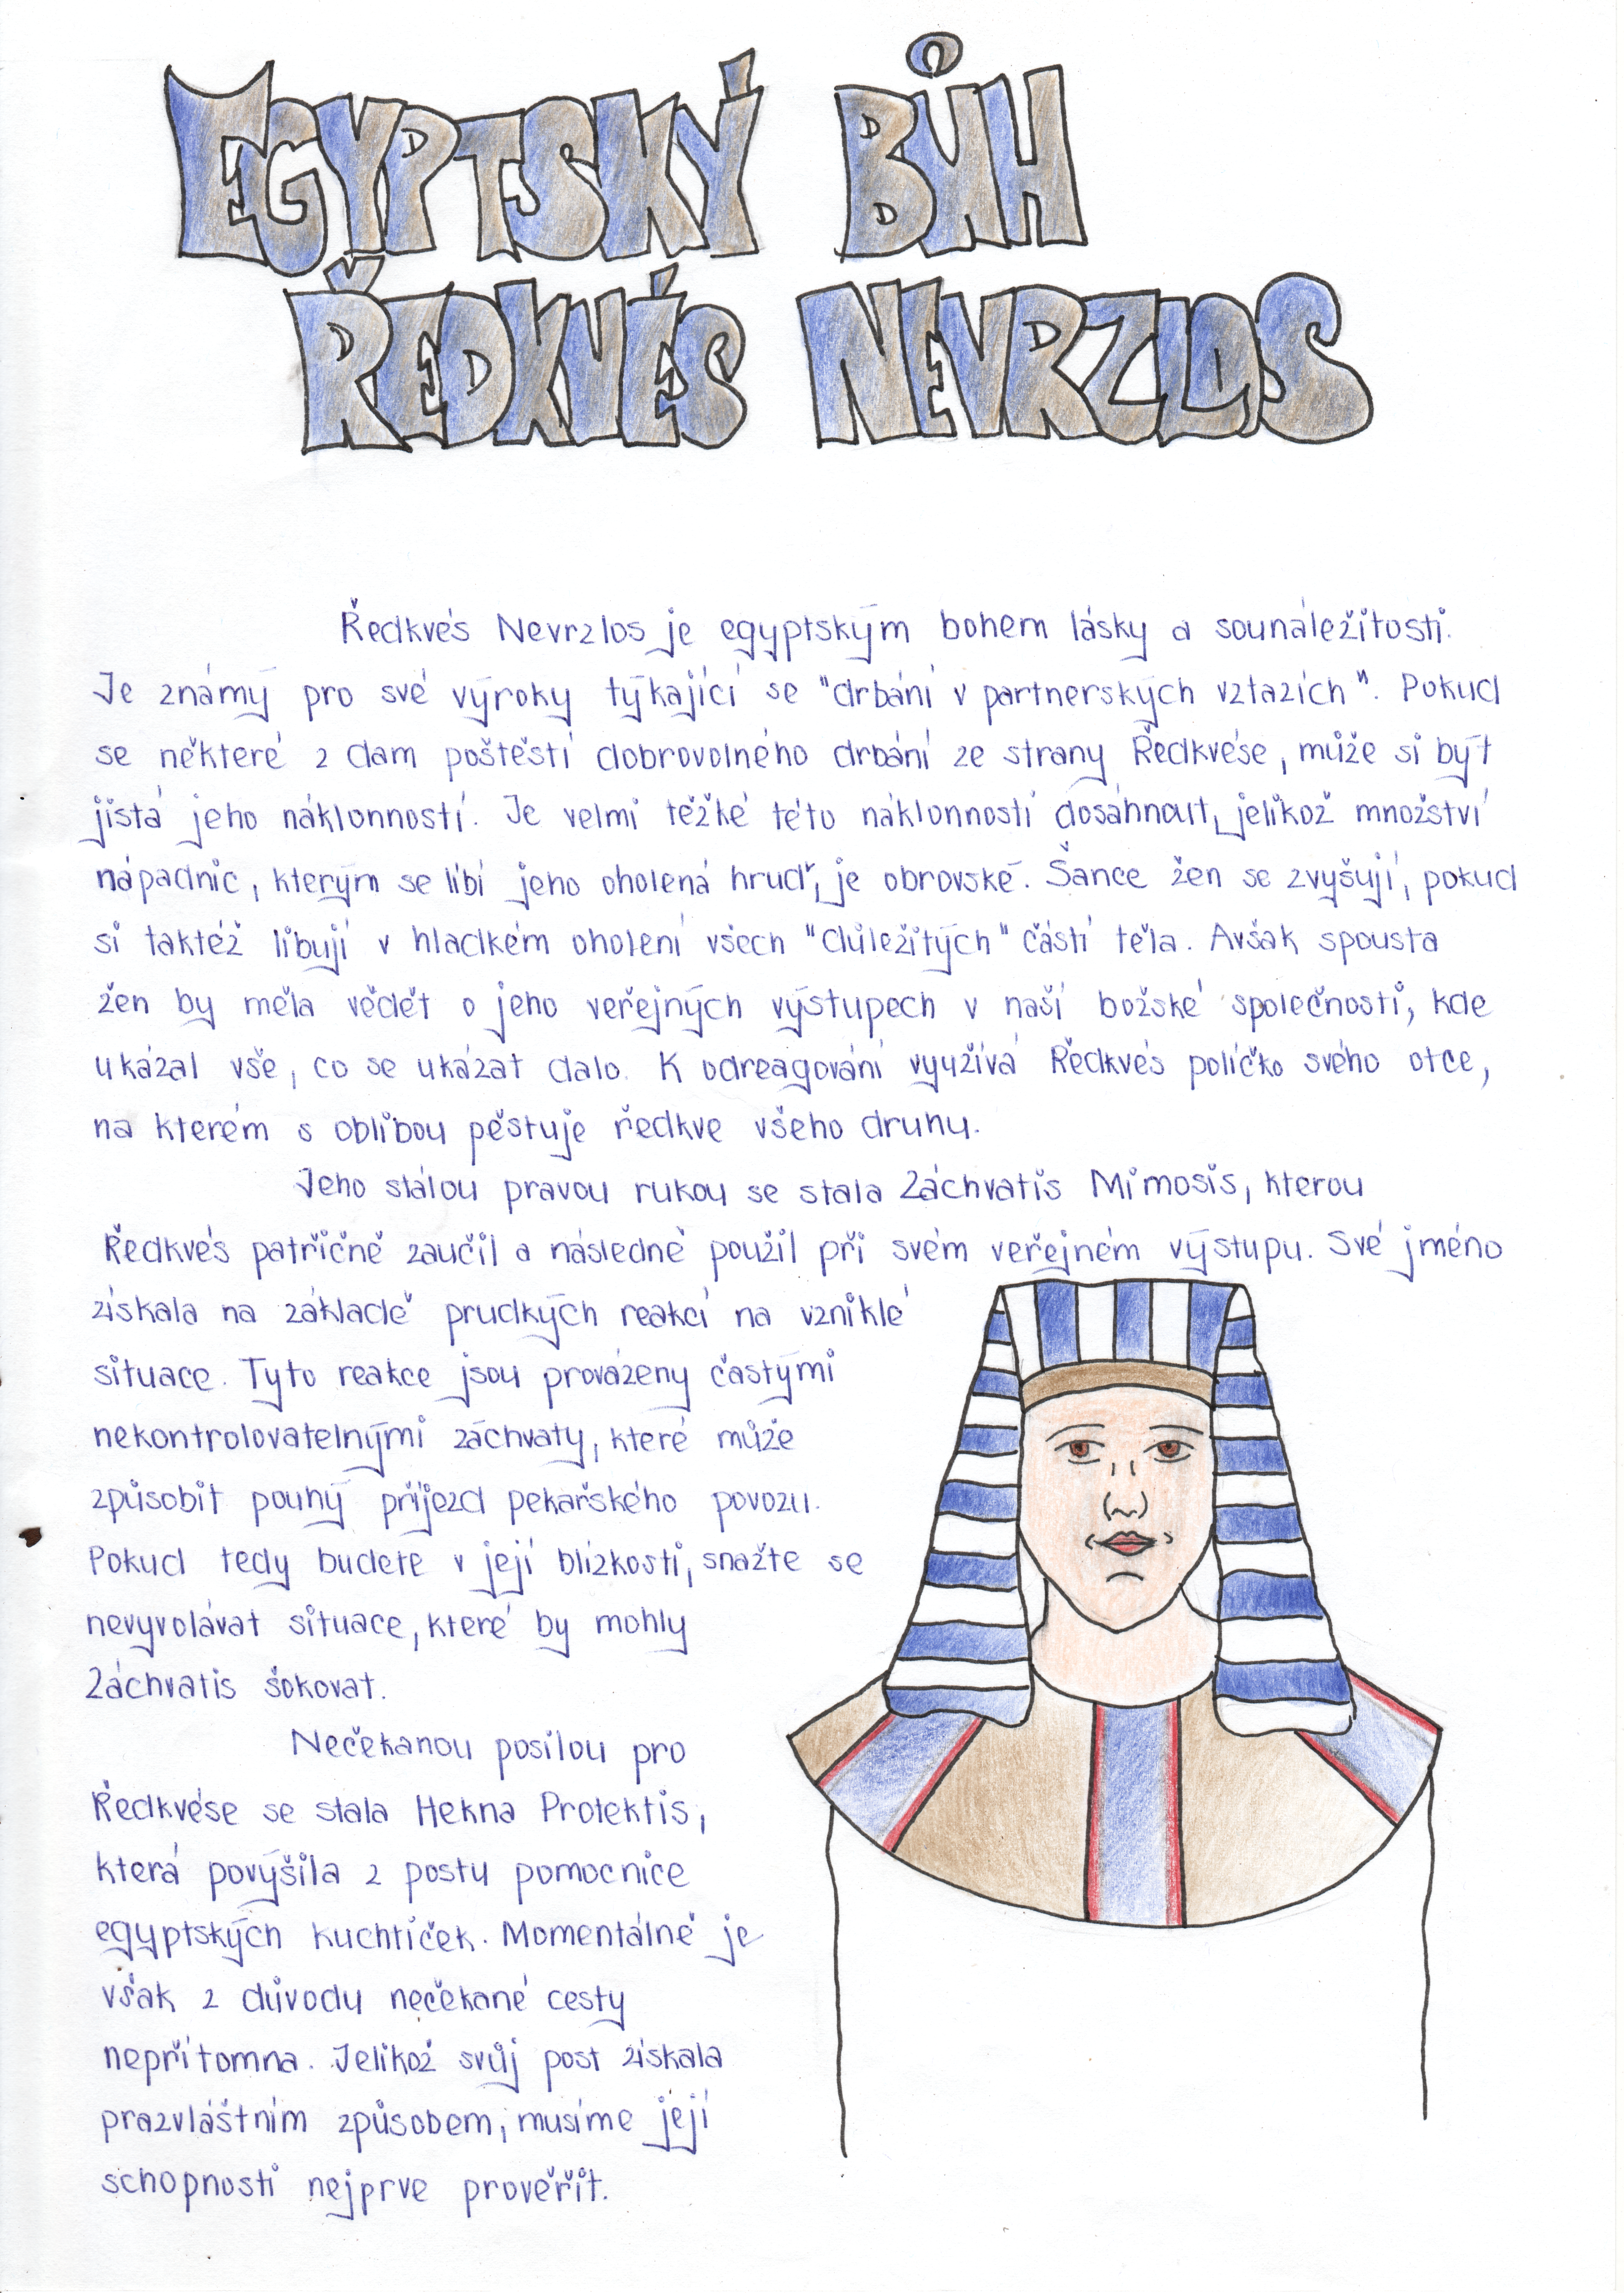 EGYPTSKÝ BŮH
ŘEDKVÉS NEVRZLOS
Ředkvés Nevrzlos je egyptským bohem lásky a sounáležitosti.
Je známý pro své výroky týkající se "drbání v partnerských vztazích". Pokud
se některé z dam poštěstí dobrovolného drbání ze strany Ředkvése, může si být
jistá jeho náklonností. Je velmi těžké této náklonnosti dosáhnout, jelikož množství
nápadnic, kterým se líbí jeho oholená hruď, je obrovské. Šance žen se zvyšují, pokud
si taktéž libují v hladkém oholení všech "důležitých" částí těla. Avšak spousta
žen by měla vědět o jeho veřejných výstupech v naší božské společnosti, kde
ukázal vše, co se ukázat dalo. K odreagování využívá Ředkvés políčko svého otce,
na kterém s oblibou pěstuje ředkve všeho druhu.
Jeho stálou pravou rukou se stala Záchvatis Mimosis, kterou
Ředkvés patřičně zaučil a následně použil při svém veřejném výstupu. Své jméno
získala na základě prudkých reakcí na vzniklé
situace. Tyto reakce jsou provázeny častými
nekontrolovatelnými záchvaty, které může
způsobit pouhý příjezd pekařského povozu.
Pokud tedy budete v její blízkosti, snažte se
nevyvolávat situace, které by mohly
Záchvatis šokovat.
Nečekanou posilou pro
Ředkvése se stala Hekna Protektis,
která povýšila z postu pomocnice
egyptských kuchtiček. Momentálně je
však z důvodu nečekané cesty
nepřítomna. Jelikož svůj post získala
prazvláštním způsobem, musíme její
schopnosti nejprve prověřit.